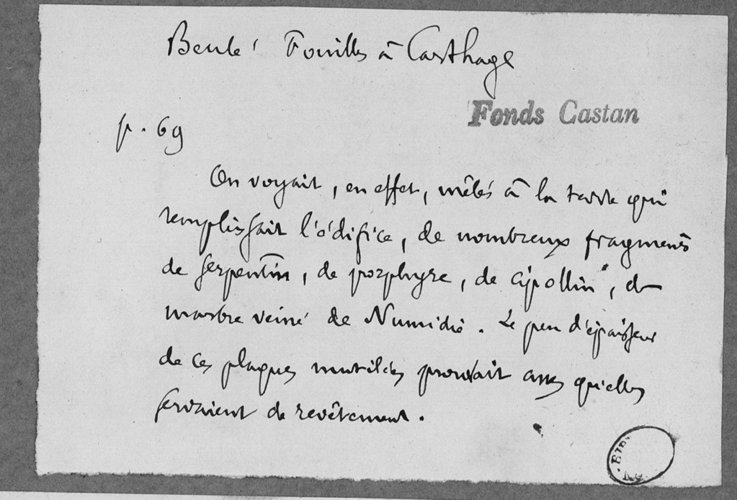 Beulé Fouilles à Carthage
Fonds Castan
p. 69
On voyait, en effet, mêlés à la terre qui
remplissait l'édifice, de nombreux fragments
de serpentin, de porphyre, de cipollin, de
marbre veiné de Numidie. Le peu d'épaisseur
de ces plaques mutilées prouvait assez qu'elles
servaient de revêtement.